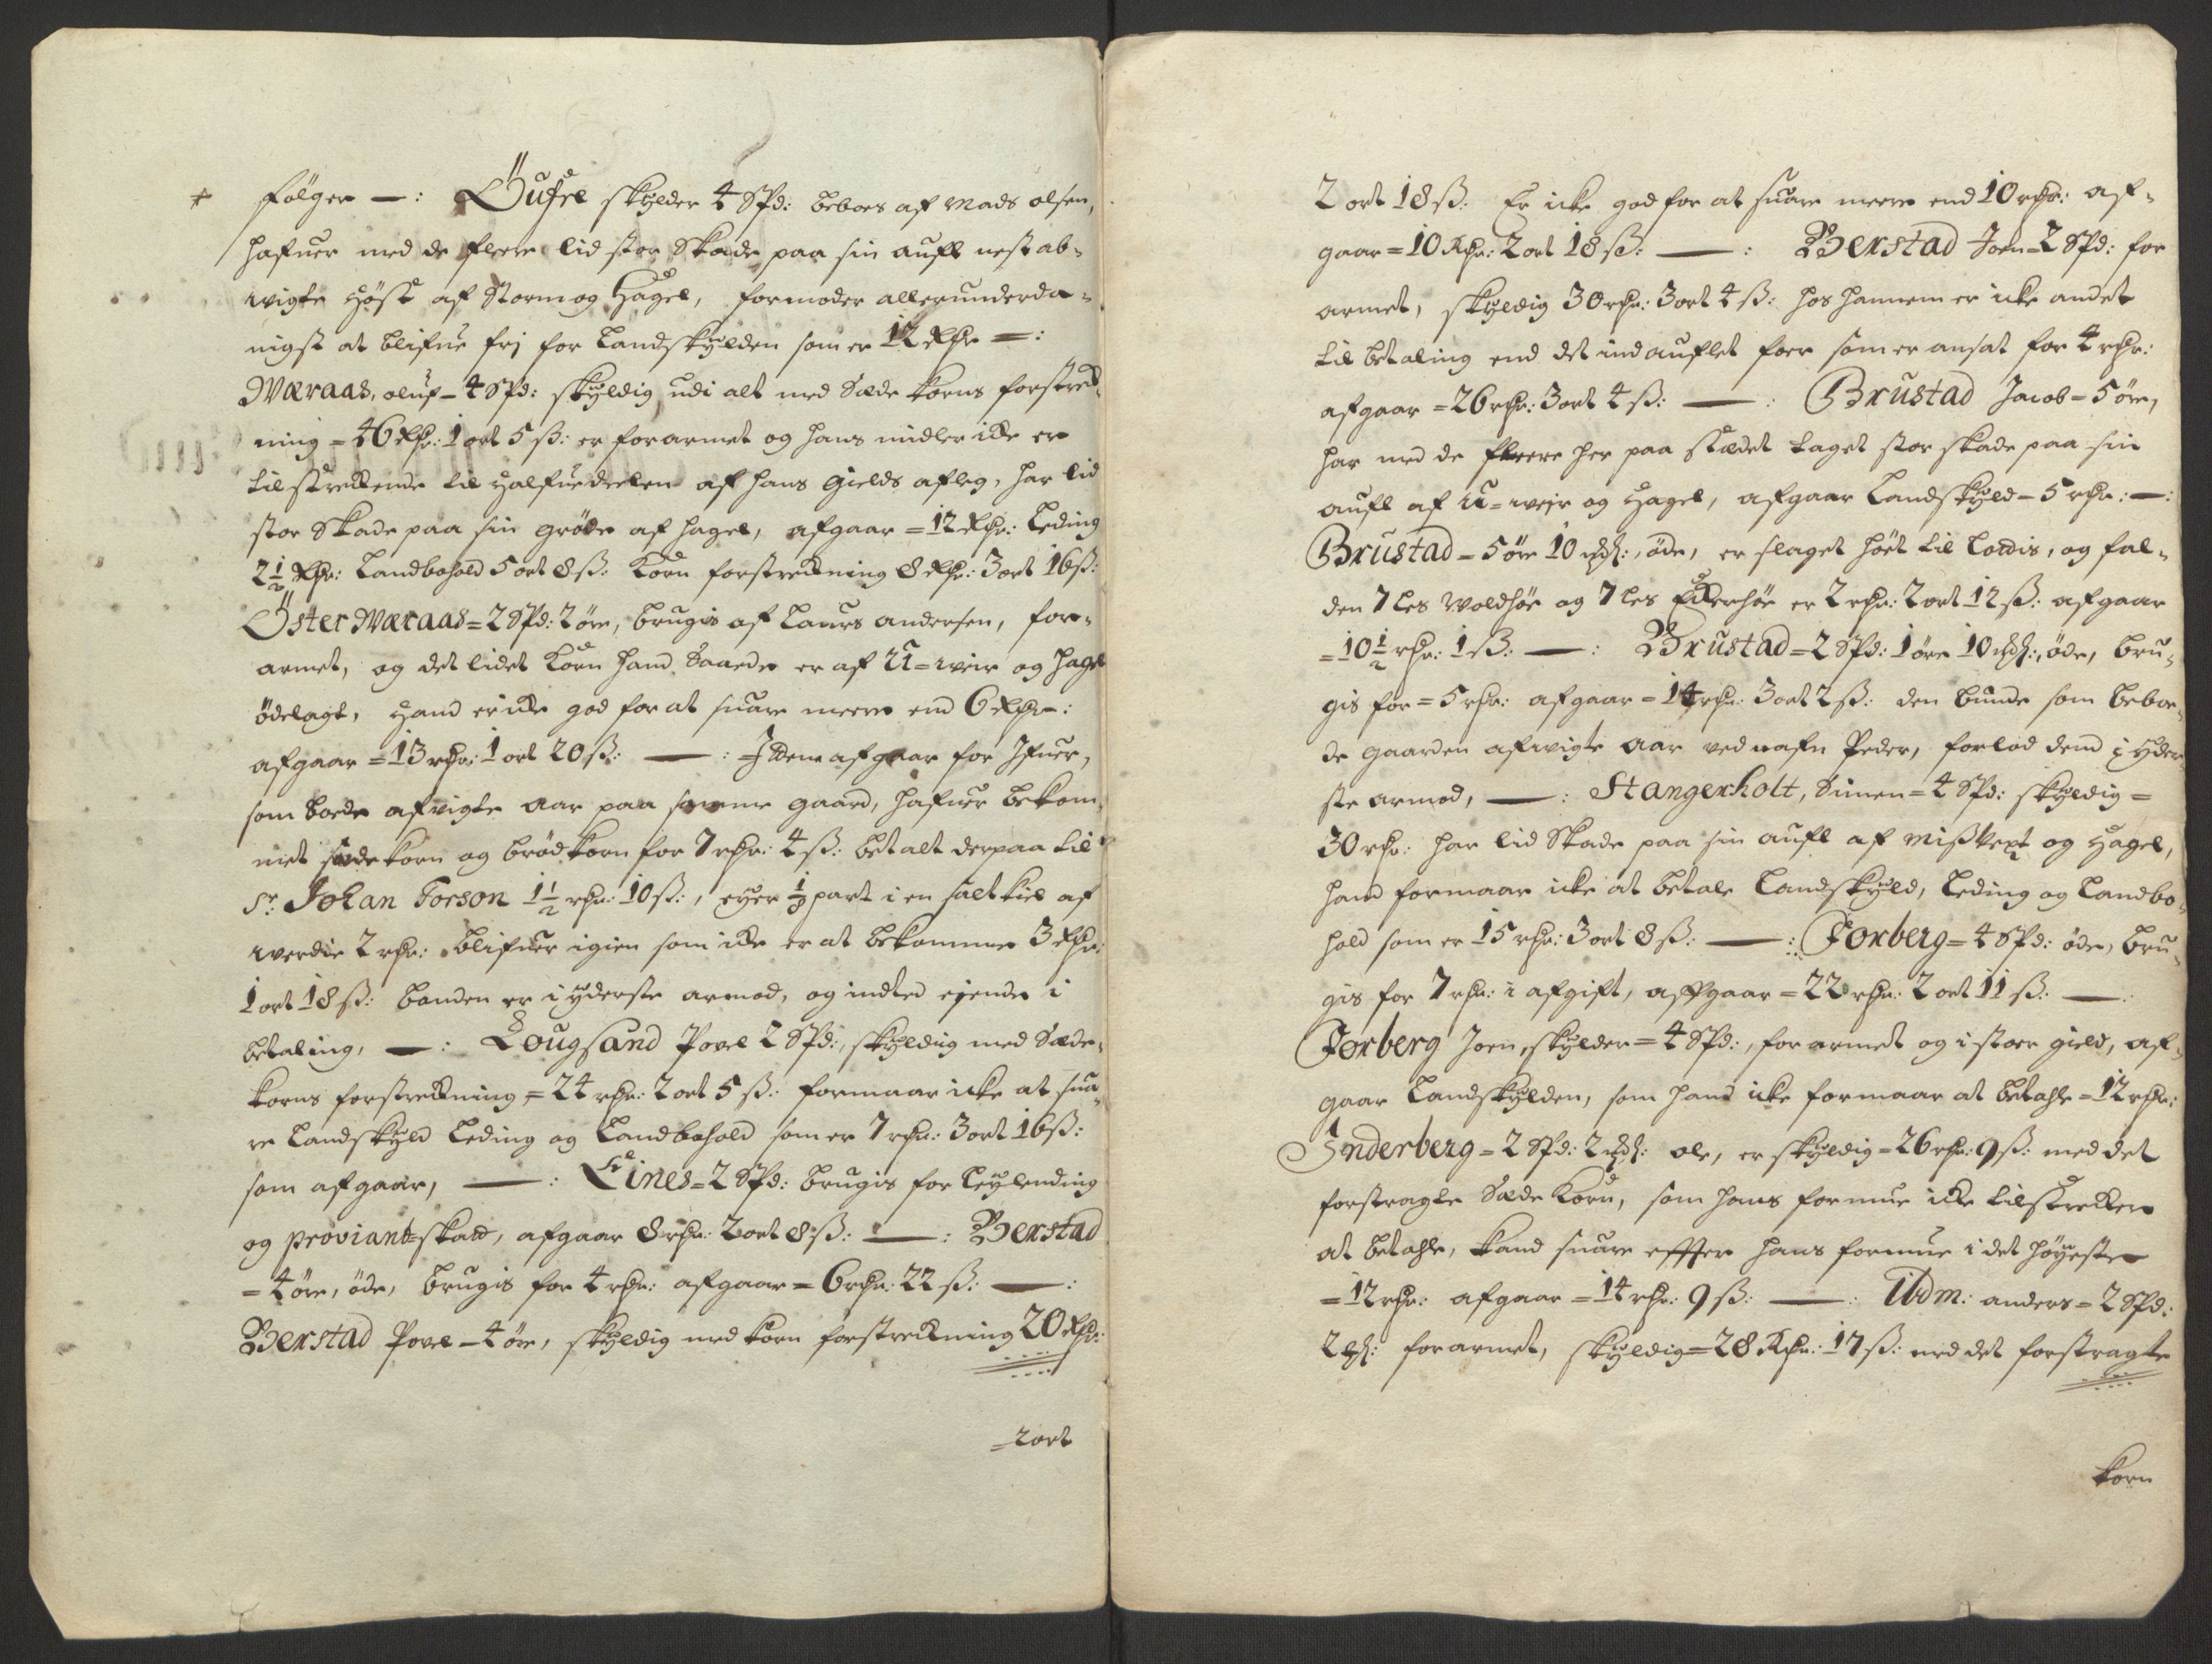 følger —: Öufre skylder 4 Spd: beboes af Mads olsen,
hafuer med de fleere lid stor Skade paa sin aufl nest ab-
wigte Høst af Storm og Hagel, formoder allerunderda-
nigst at blifue frj for Landskylden som er 12 Rdr =:
Wæraas, oluf - 4 Spd: skyldig udi alt med Sæde Korns forstreck-
ning = 46 Rdr: 1 ort 5 ß: er forarmet og hans midler icke er
tilstreckende til Halfuedeelen af hans gields afleg, har lid
stor Skade paa sin grøde af hagel, afgaar = 12 Rdr: Leding
2½ Rdr: Landbohold 5 ort 8 ß: Korn forstreckning 8 Rdr: 3 ort 16 ß:
Öster Wæraas = 2 Spd: 2 øre, brugis af Laurs andersen, for-
armet, og det lidet Korn hand Saaede er af U=weir og hagel
ødelagt, Hand er icke god for at suare meere end 6 Rdr -:
afgaar = 13 rdr: 1 ort 20 ß: —: Jttem afgaar for Jfuer,
som boede afvigte aar paa samme gaard, hafuer bekom-
met sædekorn og brødkorn for 7 rdr: 4 ß: betalt derpaa til
Sr: Johan Torson 1½ rdr: 10 ß:, eyer part i en salt kiel af
werdie 2 rdr: blifuer igien som icke er at bekomme 3 Rdr:
1 ort 18 ß: bonden er i yderste armod, og intted ejende i
betaling, —: Lougsand Povel 2 Spd:, skyldig med Sæde-
korns forstreckning = 24 rdr: 2 ort 5 ß: formaar icke at sua-
re Landskyld Leding og Landbohold som er 7 rdr: 3 ort 16 ß:
som afgaar, —: Lines = 2 Spd: brugis for Leylending
og proviant=skatt, afgaar 8 rdr: 2 ort 8 ß: —: Berstad
= 4 øre, øde, brugis for 4 rdr: afgaar = 6 rdr: 22 ß: —:
Berstad Povel - 4 øre, skyldig med Korn forstreckning 20 Rdr:
= 2 ort
2 ort 18 ß: Er icke god for at suare meere end 10 rdr: af-
gaar = 10 Rdr: 2 ort 18 ß: —: Berstad Joen - 2 Spd: for
armet, skyldig 30 rdr: 3 ort 4 ß: hos hannem er icke andet
til betaling end det indauflet foer som er ansat for 4 rdr:
afgaar = 26 rdr: 3 ort 4 ß: —: Brustad Jacob = 5 øre,
har med de fleere her paa stædet taget stor skade paa sin
aufl af U=weir og Hagel, afgaar Landskyld - 5 rdr: —:
Brustad = 5 øre 10, øde, er slaget høet til Lottis, og fal-
den 7 Les Woldhøe og 7 les Eckerhøe er 2 rdr: 2 ort 12 ß: afgaar
= 10½ rdr: 1 ß: —: Brustad = 2 Spd: 1 øre 10, øde, bru-
gis for = 5 rdr: afgaar = 14 rdr: 3 ort 2 ß: den bunde som beboe-
de gaarden afvigte aar ved nafn Peder, forlod dend i yder-
ste armod, —: Stangerholt, Simen = 4 Spd: skyldig =
30 rdr: har lid Skade paa sin aufl af Mißvext og Hagel,
hand formaar icke at betale Landskyld, Leding og Landbo-
hold som er 15 rdr: 3 ort 8 ß: —: Forberg = 4 Spd: øde, bru-
gis for 7 rdr: i afgift, afgaar = 22 rdr: 2 ort 11 ß: —:
Forberg Joen, skylder = 4 Spd:, forarmet og i stoer gield, af-
gaar Landskylden, som hand icke formaar at betahle = 12 rdr:
Inderberg = 2 Spd: 2 ole, er skyldig = 26 rdr: 9 ß: med det
forstragte Sæde Korn, som hans formue icke tilstrecker
at betahle, kand suare effter hans formue i det høyeste
= 12 rdr: afgaar = 14 rdr: 9 ß: —: Ibdm: anders = 2 Spd:
2 forarmet, skyldig = 28 Rdr: 17 ß: med det forstragte
Korn